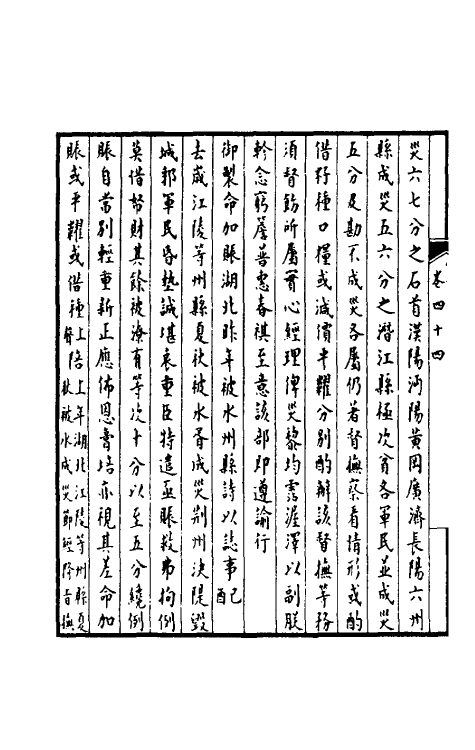 卷四十四
災六七分之石首漢陽沔陽黃岡廣濟長陽六州
縣成災五六分之潛江縣極次貧各軍民並成災
五分及勘不成災各屬仍著督撫察看情形或酌
借籽種口糧或減價平糶分別酌辦該督撫等務
須督飭所屬實心經理俾災黎均霑渥澤以副朕
軫念窮簷普惠春祺至意該部即遵諭行
御製命加賑湖北昨年被水州縣詩以誌事己酉
去歲江陵等州縣夏秋被水胥成災荆州決隄毀
城郭軍民昏墊誠堪哀重臣特遣亟賑救弗拘例
莫惜帑財其餘被潦有等次十分以至五分縷例
賑自當別輕重新正應佈恩膏培亦視其差命加
賑或平糶或借種上陪上年湖北江陵等州縣夏
秋被水成災節經降旨撫